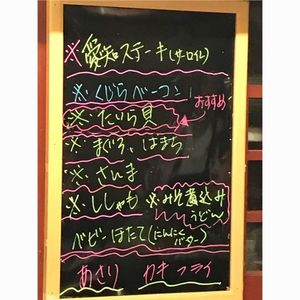 ※愛知ステーキ(サーロイン)
※くじらベーコン
おすすめ
※たいら貝
※まぐろ、はまち
※さんま
※ししゃも ※みそ煮込み
うどん
ベビーほたて(にんにくバター)
あさり カキフライ